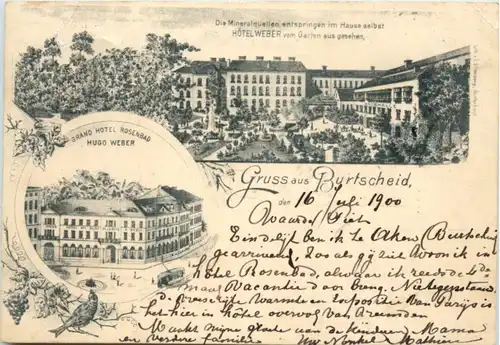 Die Mineralquellen entspringen im Hause selbst
HÔTEL WEBER vom Garten aus gesehen.
GRAND HOTEL ROSENBAD
HUGO WEBER
Gruss aus Burtscheid,
den 16 Juli 1900
Waarde Piet
Eindelijk ben ik te Aken (Burtscheid
gearriveerd, Zoo als gij ziet woon ik in
hôtel Rosenbad, alwaar ik reeds de 4de
maal Vacantie door breng.
Die vreeselijke warmte en expositie van Parijs is
het hier in hôtel overvol van vreemden
Maakt mijne groete aan de kinderen Mama
en verdere familie Uw Nonkel Mathieu